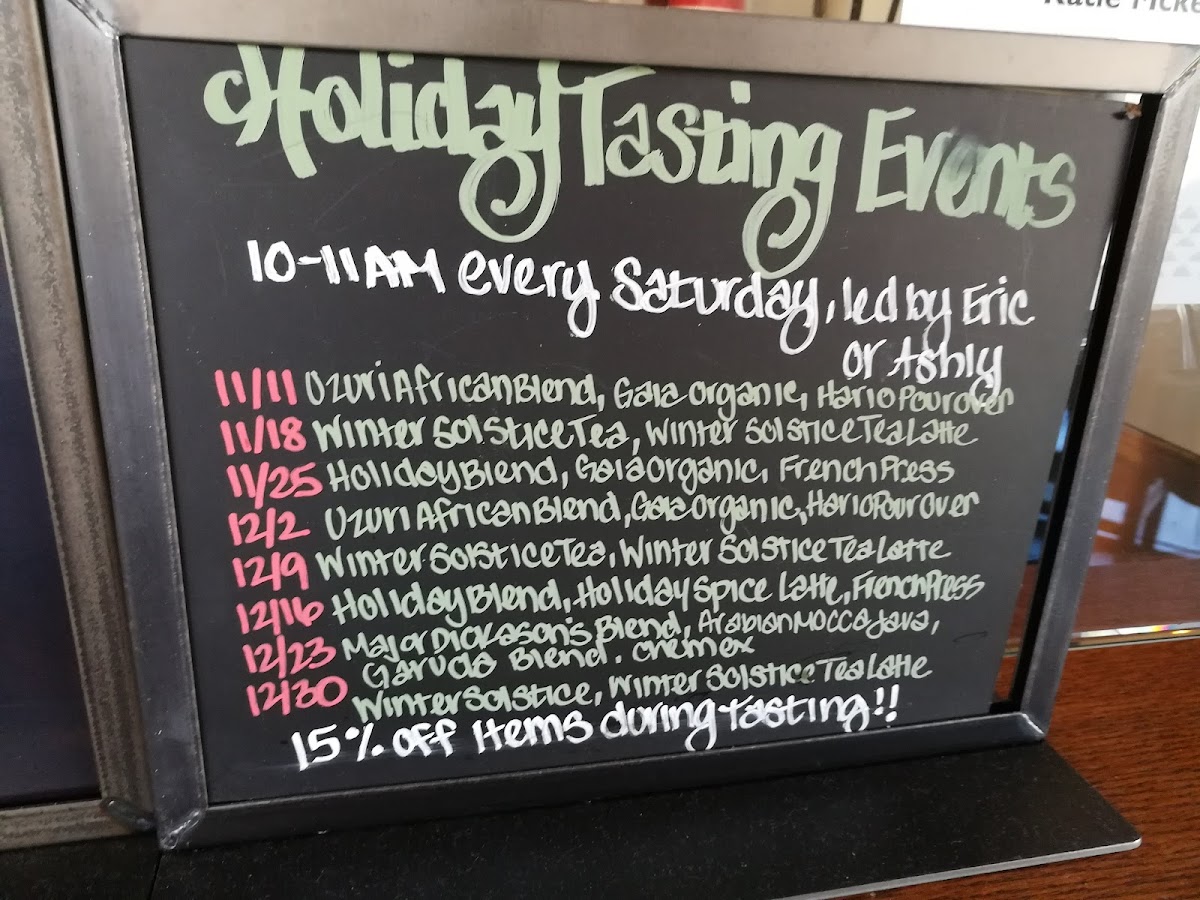 Holiday Tasting Events
10-11AM every Saturday, led by Eric
or Ashly
11/11 Uzuri African Blend, Gaia Organic, Hario Pour over
11/18 Winter Solstice Tea, Winter Solstice Tea Latte
11/25 Holiday Blend, Gaia Organic, French Press
12/2 Uzuri African Blend, Gaia Organic, Hario Pour Over
12/9 Winter Solstice Tea, Winter Solstice Tea Latte
12/16 Holiday Blend, Holiday Spice Latte, French Press
12/23 Major Dickason's Blend, Arabian Mocca Java,
Garuda Blend. Chemex
12/30 Winter Solstice, Winter Solstice Tea Latte
15% off Items during tasting!!